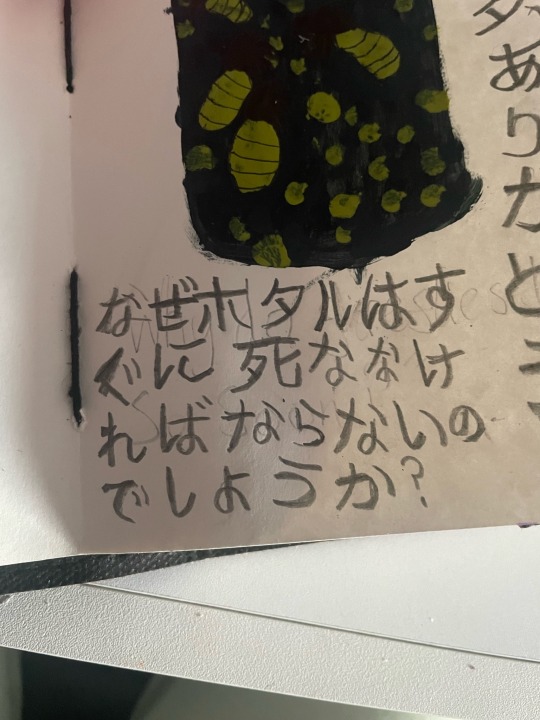 なぜホタルはす
ぐに死ななけ
ればならないの
でしょうか?
ありがとう